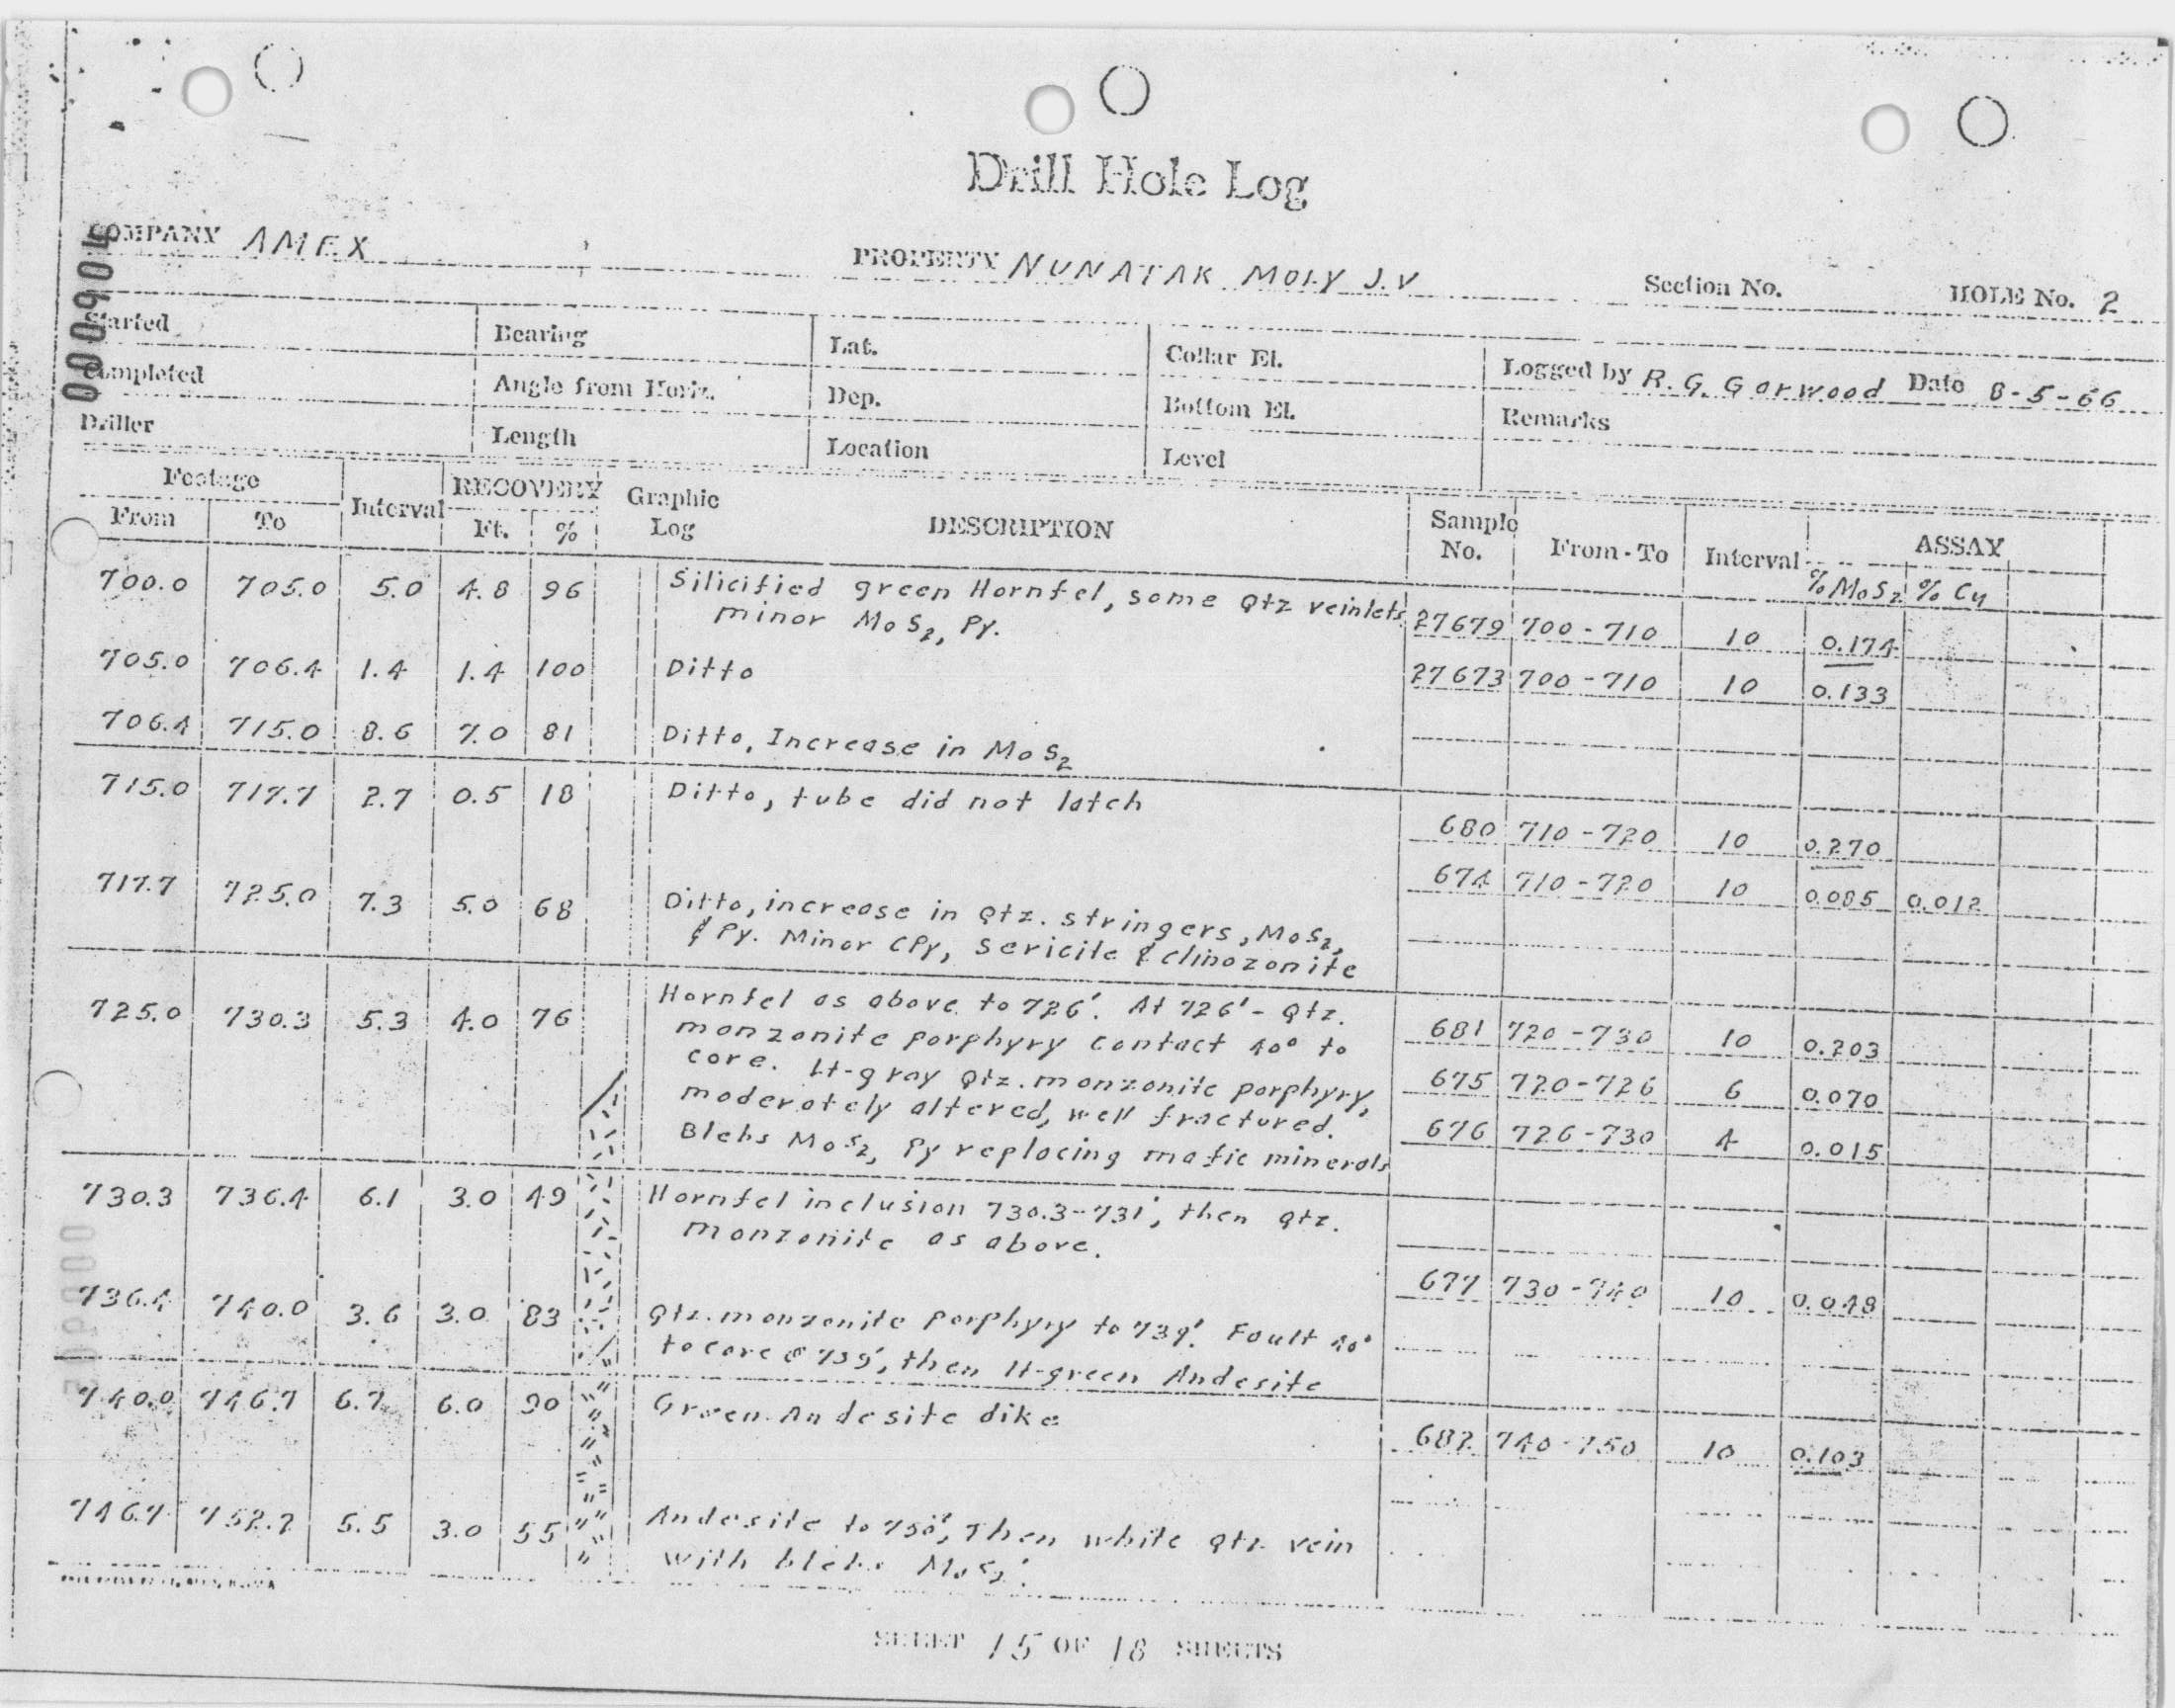 Drill Hole Log
000904
COMPANY AMEX PROPERTY NUNATAK MOLY J.V Section No. HOLE No. 2
Started Bearing Lat. Collar El. Logged by R. G. Garwood Date 8-5-66
Completed Angle from Horiz. Dep. Bottom El. Remarks
Driller Length Location Level
Footage Interval RECOVERY Graphic Log DESCRIPTION Sample No. From-To Interval ASSAY
From To Ft. % %MoS2 % Cu
700.0 705.0 5.0 4.8 96 Silicified green Hornfel, some Qtz veinlets
minor MoS2, Py. 27679 700-710 10 0.174
705.0 706.4 1.4 1.4 100 Ditto 27673 700-710 10 0.133
706.4 715.0 8.6 7.0 81 Ditto, Increase in MoS2
715.0 717.7 2.7 0.5 18 Ditto, tube did not latch
680 710-720 10 0.270
674 710-720 10 0.085 0.012
717.7 725.0 7.3 5.0 68 Ditto, increase in Qtz. stringers, MoS2,
& Py. Minor CPy, Sericite & clinozonite
725.0 730.3 5.3 4.0 76 Hornfel as above to 726'. At 726'- Qtz.
monzonite porphyry contact 40° to 681 720-730 10 0.203
core. Lt-gray Qtz. monzonite porphyry, 675 720-726 6 0.070
moderately altered, well fractured. 676 726-730 4 0.015
Blebs MoS2, Py replacing mafic minerals
730.3 736.4 6.1 3.0 49 Hornfel inclusion 730.3-731', then Qtz.
monzonite as above.
677 730-740 10 0.048
736.4 740.0 3.6 3.0 83 Qtz. monzonite porphyry to 739'. Fault 40°
to core @ 739', then lt-green Andesite
740.0 746.7 6.7 6.0 90 Green Andesite dike
682 740-750 10 0.103
746.7 752.2 5.5 3.0 55 Andesite to 750', Then white Qtz vein
with blebs MoS2.
SHEET 15 OF 18 SHEETS